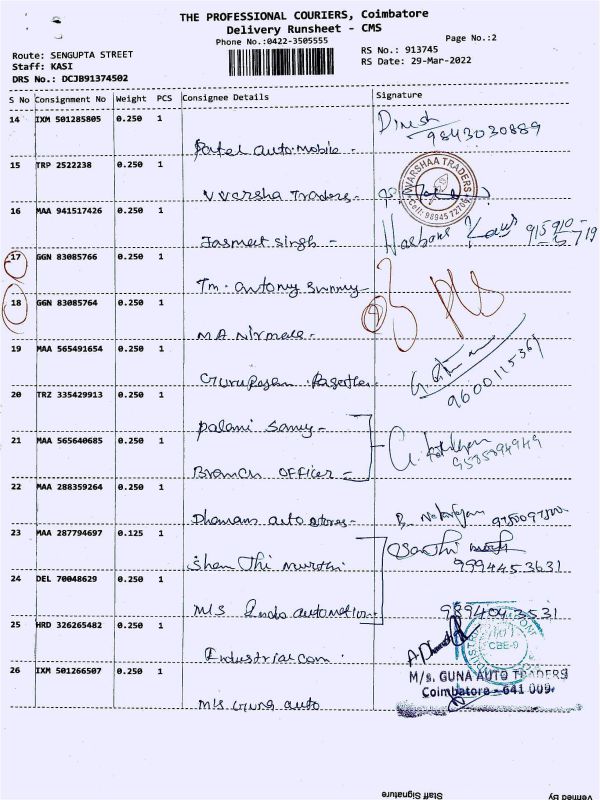 THE PROFESSIONAL COURIERS, Coimbatore
Delivery Runsheet - CMS
Phone No.:0422-3505555
Page No.:2
Route: SENGUPTA STREET
Staff: KASI
DRS No.: DCJB91374502
RS No.: 913745
RS Date: 29-Mar-2022
S No Consignment No Weight PCS Consignee Details Signature
14 IXM 501285805 0.250 1
Patel automobile - Dinesh
9843030889
15 TRP 2522238 0.250 1
V Varsha Traders -
VVARSHAA TRADERS
Cell: 98945 72706
16 MAA 941517426 0.250 1
Jasmeet Singh -
17 GGN 83085766 0.250 1
Tm. antony sunny -
18 GGN 83085764 0.250 1
MA Nirmala -
19 MAA 565491654 0.250 1
9600115361
20 TRZ 335429913 0.250 1
palani samy -
21 MAA 565640685 0.250 1
Branch officer -
22 MAA 288359264 0.250 1
Dhanam auto stores -
23 MAA 287794697 0.125 1
Shanthi murthi
9994453631
24 DEL 70048629 0.250 1
M/s Endo automation
9894043531
25 HRD 326265482 0.250 1
Industrial com.
CBE-9
26 IXM 501266507 0.250 1
M/s Guna auto
M/s. GUNA AUTO TRADERS
Coimbatore - 641 009.
Staff Signature
Verified By